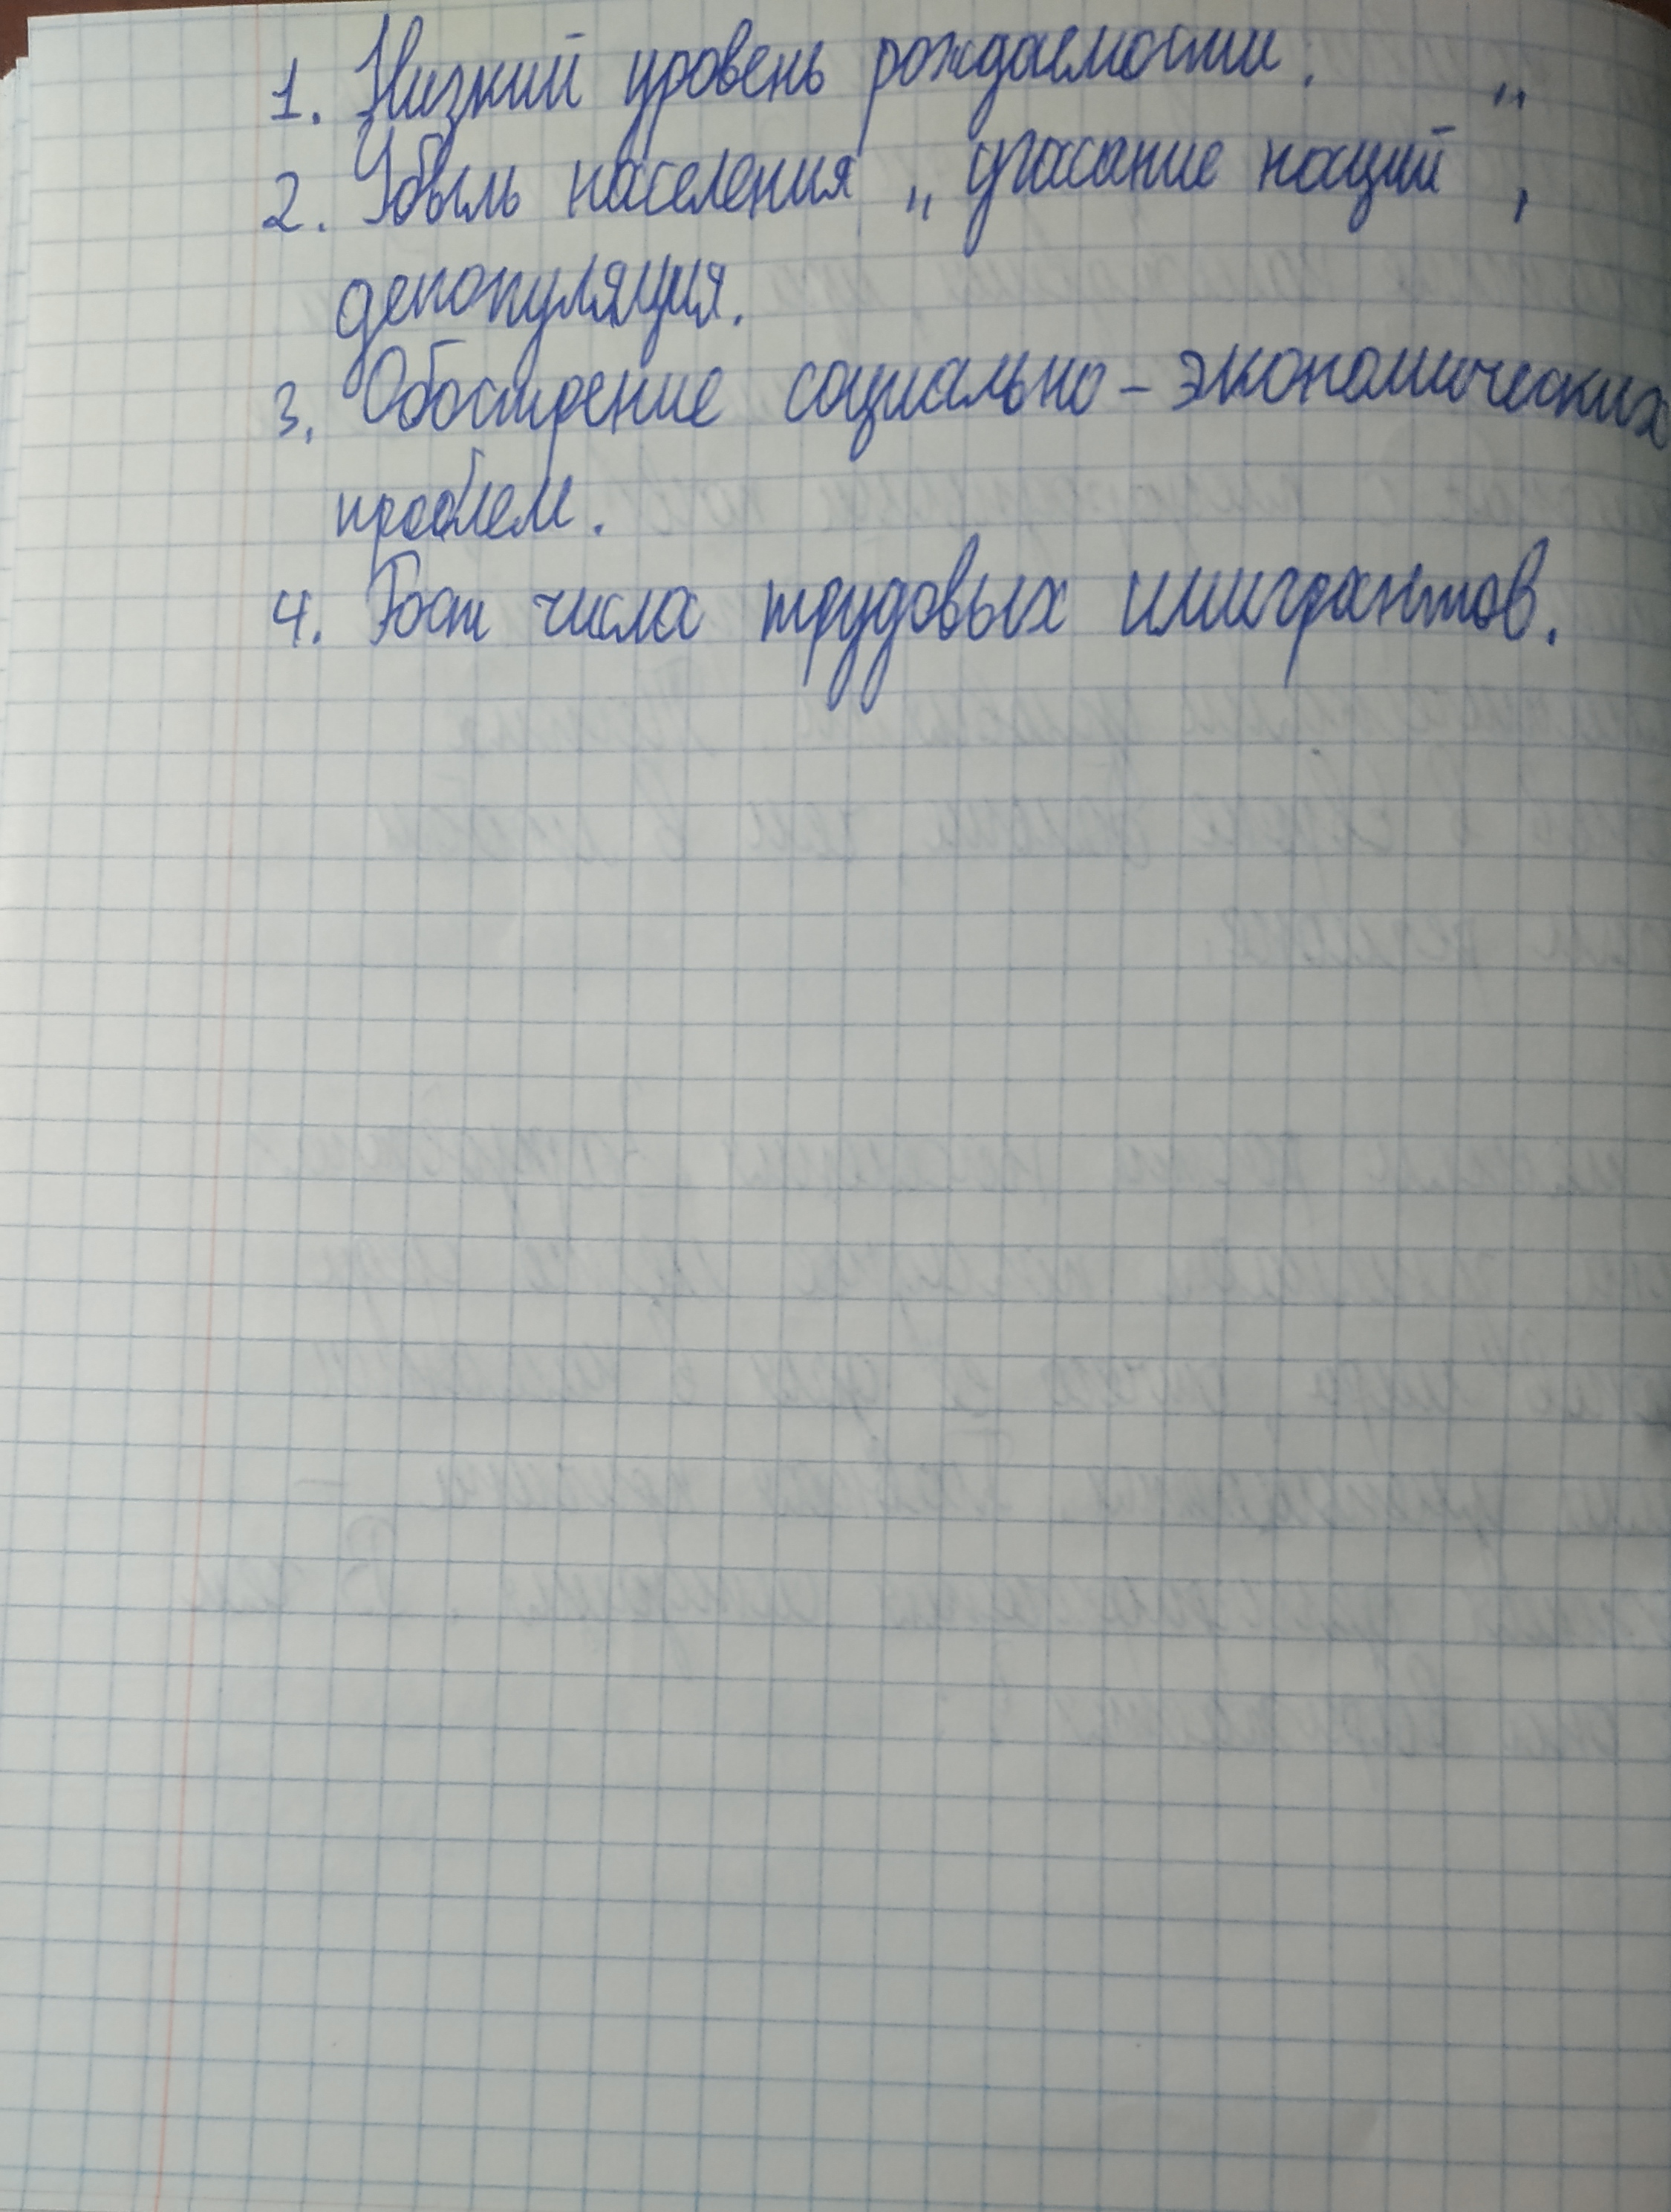 1. Низкий уровень рождаемости.
2. Убыль населения „угасание наций",
депопуляция.
3. Обострение социально-экономических
проблем.
4. Рост числа трудовых имигрантов.